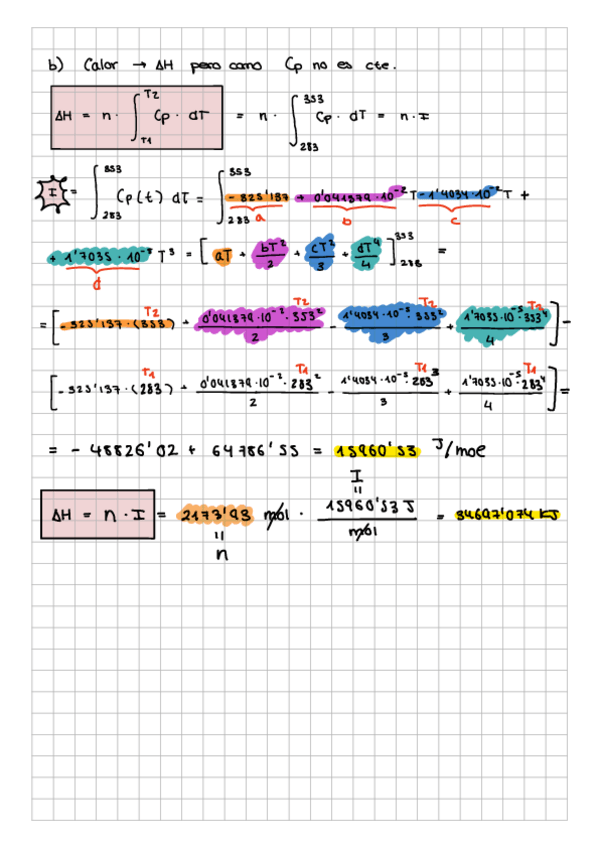 b) Calor → ΔH pero como Cp no es cte.
ΔH = n · ∫_{T1}^{T2} Cp · dT = n · ∫_{283}^{353} Cp · dT = n · I
I = ∫_{283}^{353} Cp(t) dT = ∫_{283}^{353} - 325'137 + 0'041379·10⁻² T - 1'4034·10⁻² T +
a b c
+ 1'7035·10⁻⁵ T³ = [aT + bT²/2 + cT³/3 + dT⁴/4]_{283}^{353} =
d
T2 T2 T2 T2
= [-325'137·(353) + 0'041379·10⁻²·353²/2 - 1'4034·10⁻³·353²/3 + 1'7035·10⁻⁵·353⁴/4] -
T1 T1 T1 T1
[-325'137·(283) + 0'041379·10⁻²·283²/2 - 1'4034·10⁻³·283³/3 + 1'7035·10⁻⁵·283⁴/4] =
= - 48826'02 + 64786'55 = 15960'53 J/mol
I
=
ΔH = n · I = 2173'93 mol · 15960'53 J/mol = 34697'074 kJ
=
n